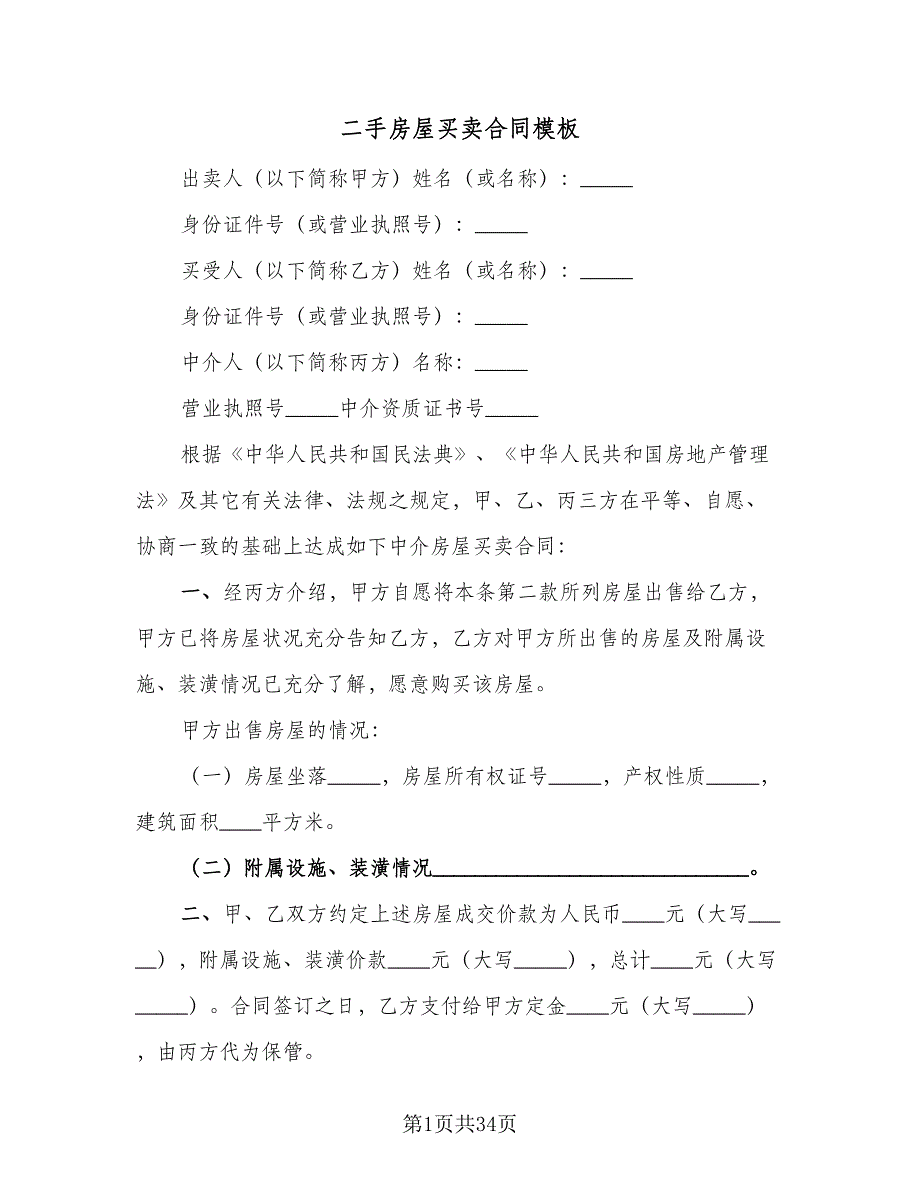 二手房屋买卖合同模板
出卖人（以下简称甲方）姓名（或名称）：_____
身份证件号（或营业执照号）：_____
买受人（以下简称乙方）姓名（或名称）：_____
身份证件号（或营业执照号）：_____
中介人（以下简称丙方）名称：_____
营业执照号_____中介资质证书号_____
根据《中华人民共和国民法典》、《中华人民共和国房地产管理
法》及其它有关法律、法规之规定，甲、乙、丙三方在平等、自愿、
协商一致的基础上达成如下中介房屋买卖合同：
一、经丙方介绍，甲方自愿将本条第二款所列房屋出售给乙方，
甲方已将房屋状况充分告知乙方，乙方对甲方所出售的房屋及附属设
施、装潢情况已充分了解，愿意购买该房屋。
甲方出售房屋的情况：
（一）房屋坐落_____，房屋所有权证号_____，产权性质_____，
建筑面积____平方米。
（二）附属设施、装潢情况______________________________。
二、甲、乙双方约定上述房屋成交价款为人民币____元（大写___
__），附属设施、装潢价款____元（大写_____），总计____元（大写
_____）。合同签订之日，乙方支付给甲方定金____元（大写_____）
，由丙方代为保管。
第1页共34页